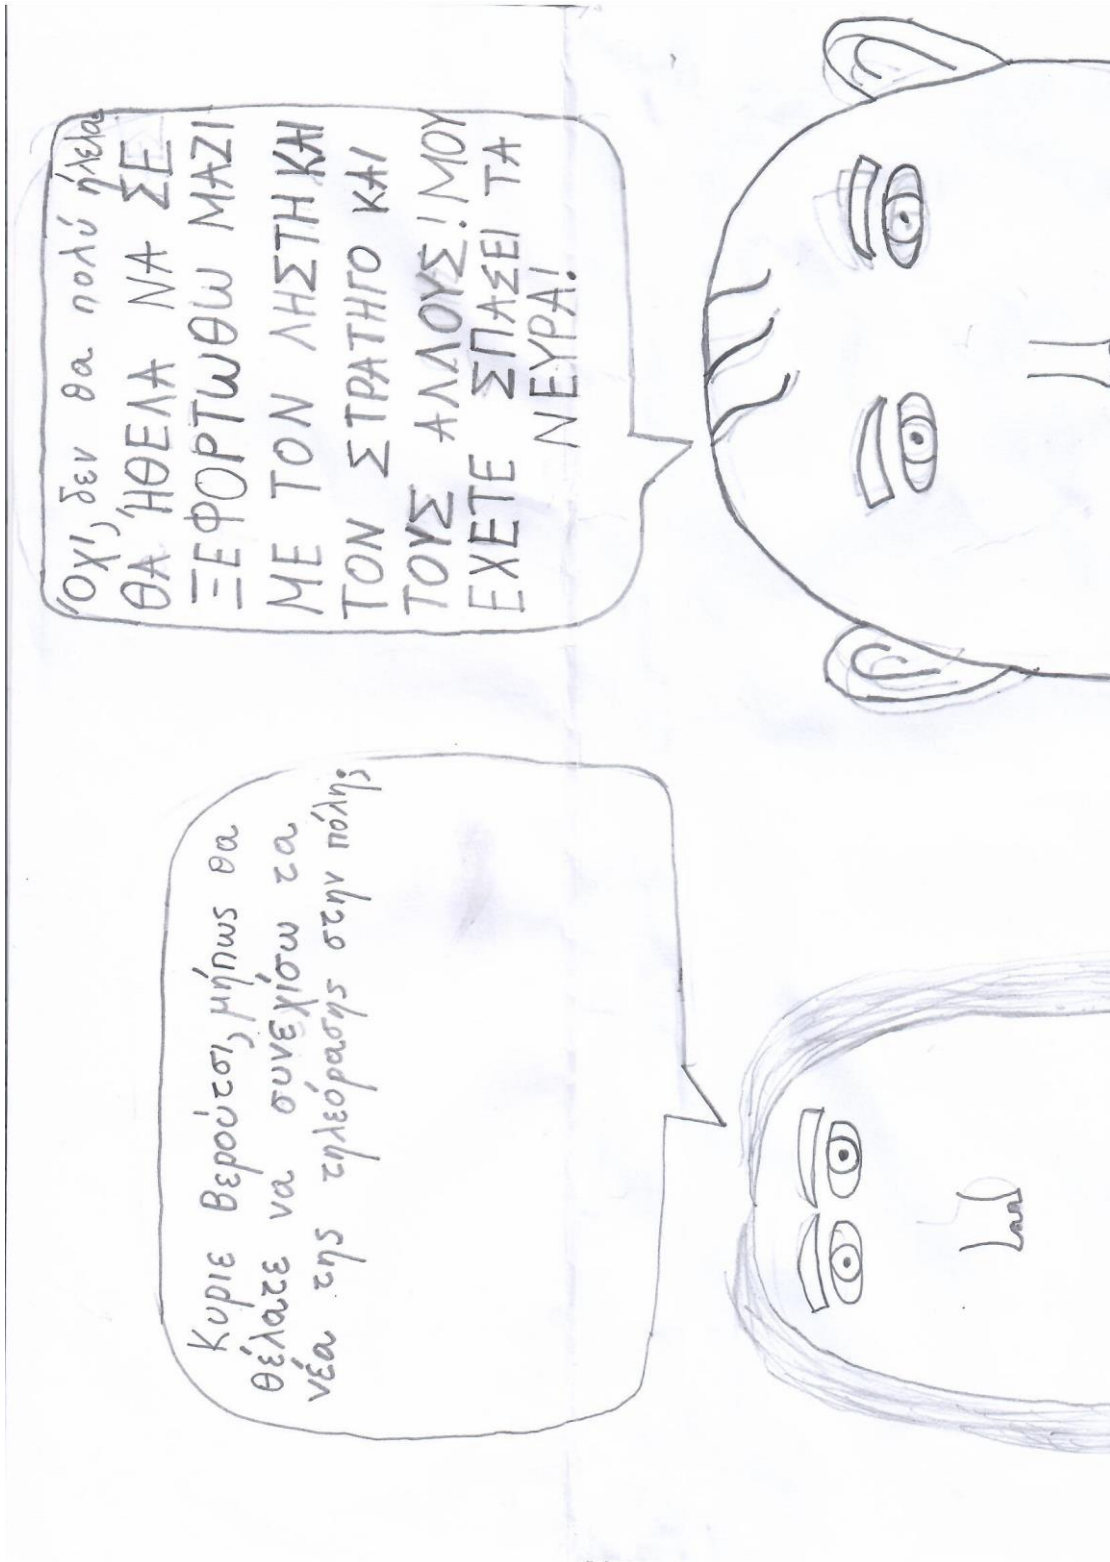 Κυριε Βερούτσι, μήπως θα
θέλατε να συνεχίσω τα
νέα της τηλεόρασης στην πόλη;
Όχι, δεν θα πολύ
ΘΑ ΉΘΕΛΑ ΝΑ ΣΕ
ΞΕΦΟΡΤΩΘΩ ΜΑΖΙ
ΜΕ ΤΟΝ ΛΗΣΤΗ ΚΑΙ
ΤΟΝ ΣΤΡΑΤΗΓΟ ΚΑΙ
ΤΟΥΣ ΑΛΛΟΥΣ! ΜΟΥ
ΕΧΕΤΕ ΣΠΑΣΕΙ ΤΑ
ΝΕΥΡΑ!